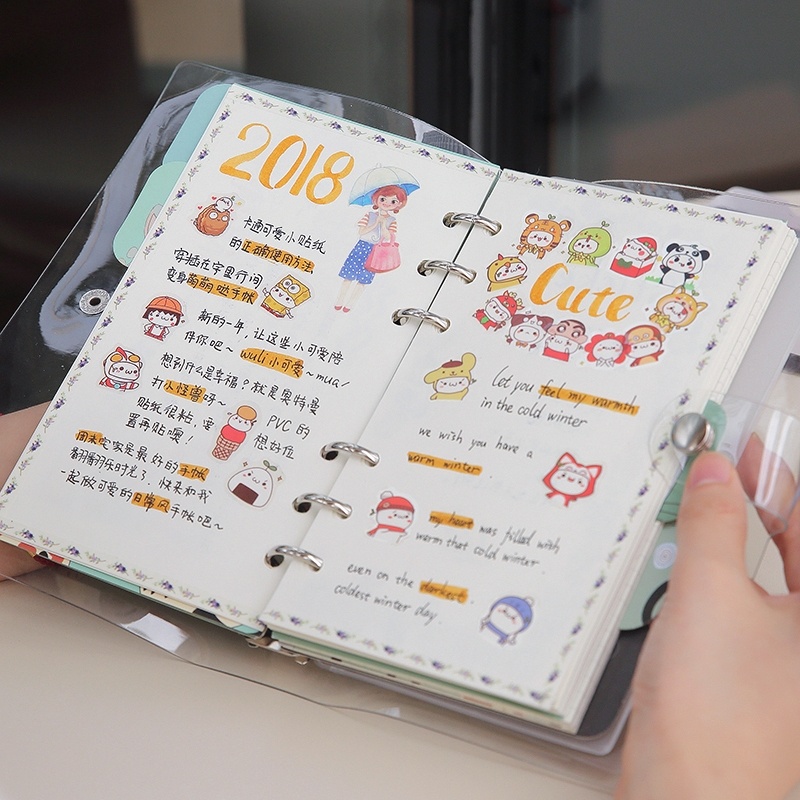 2018
卡通可爱小贴纸
的正确使用方法
穿插在字里行间
变身萌萌哒手帐
新的一年，让这些小可爱陪
伴你吧～wuli小可爱～mua/
想到什么是幸福？就是奥特曼
打小怪兽呀～
贴纸很粘，要 PVC的
置再贴噢！ 想好位
周末宅家是最好的手帐
翻翻乐时光了，快来和我
一起做可爱的日常风手帐吧～
Cute
let you feel my warmth
in the cold winter
we wish you have a
warm winter
my heart was filled with
warm that cold winter.
even on the darkest.
coldest winter day.